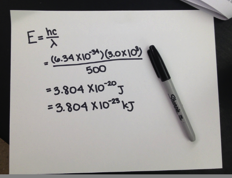 E = hc/λ
= (6.34 X10⁻³⁴)(3.0 X10⁸)/500
= 3.804 X10⁻²⁰ J
= 3.804 X10⁻²³ kJ
Sharpie